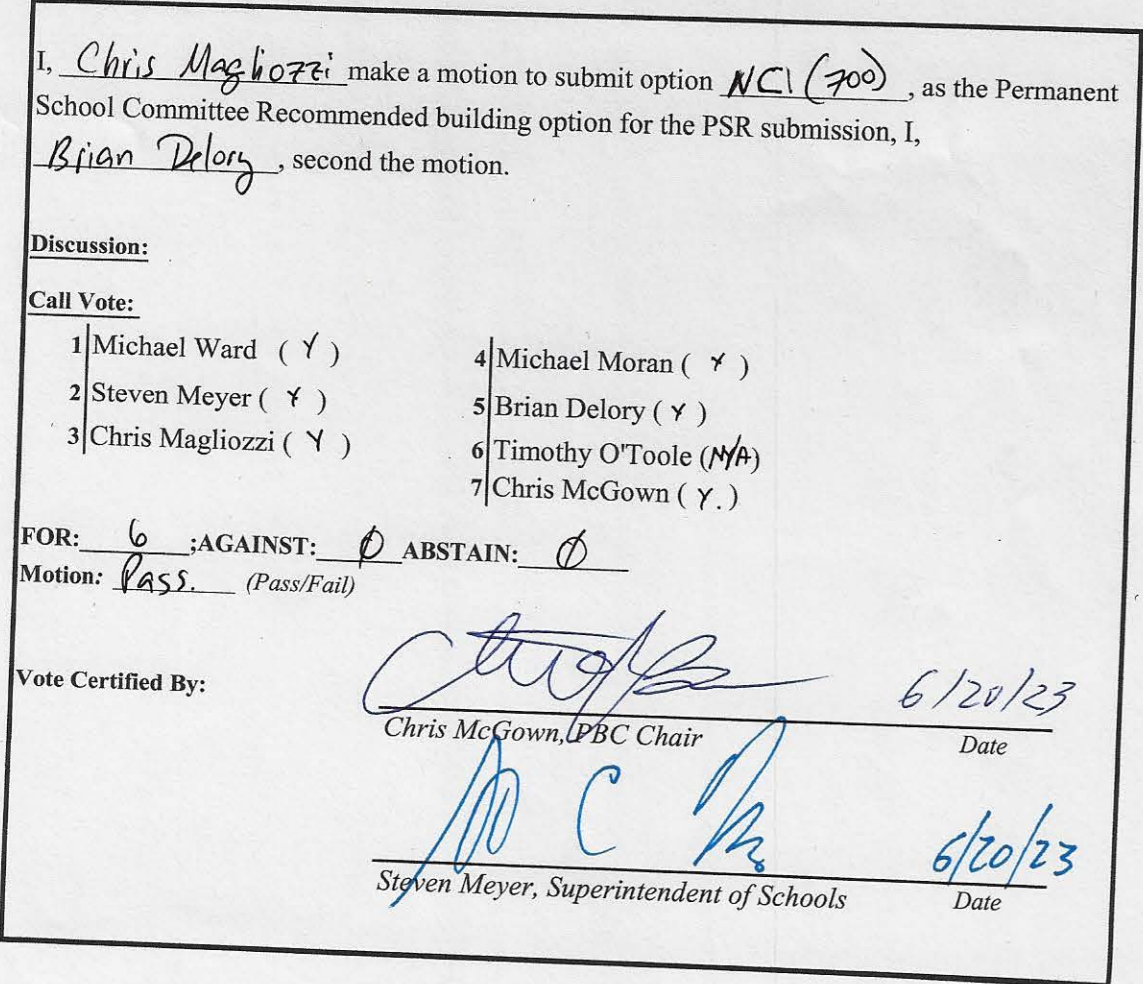 I, Chris Magliozzi make a motion to submit option NC1 (700), as the Permanent
School Committee Recommended building option for the PSR submission, I,
Brian Delory, second the motion.
Discussion:
Call Vote:
1 Michael Ward ( Y )
2 Steven Meyer ( Y )
3 Chris Magliozzi ( Y )
4 Michael Moran ( Y )
5 Brian Delory ( Y )
6 Timothy O'Toole (N/A)
7 Chris McGown ( Y. )
FOR: 6 ;AGAINST: 0 ABSTAIN: 0
Motion: Pass. (Pass/Fail)
Vote Certified By:
6/20/23
Chris McGown, PBC Chair Date
6/20/23
Steven Meyer, Superintendent of Schools Date